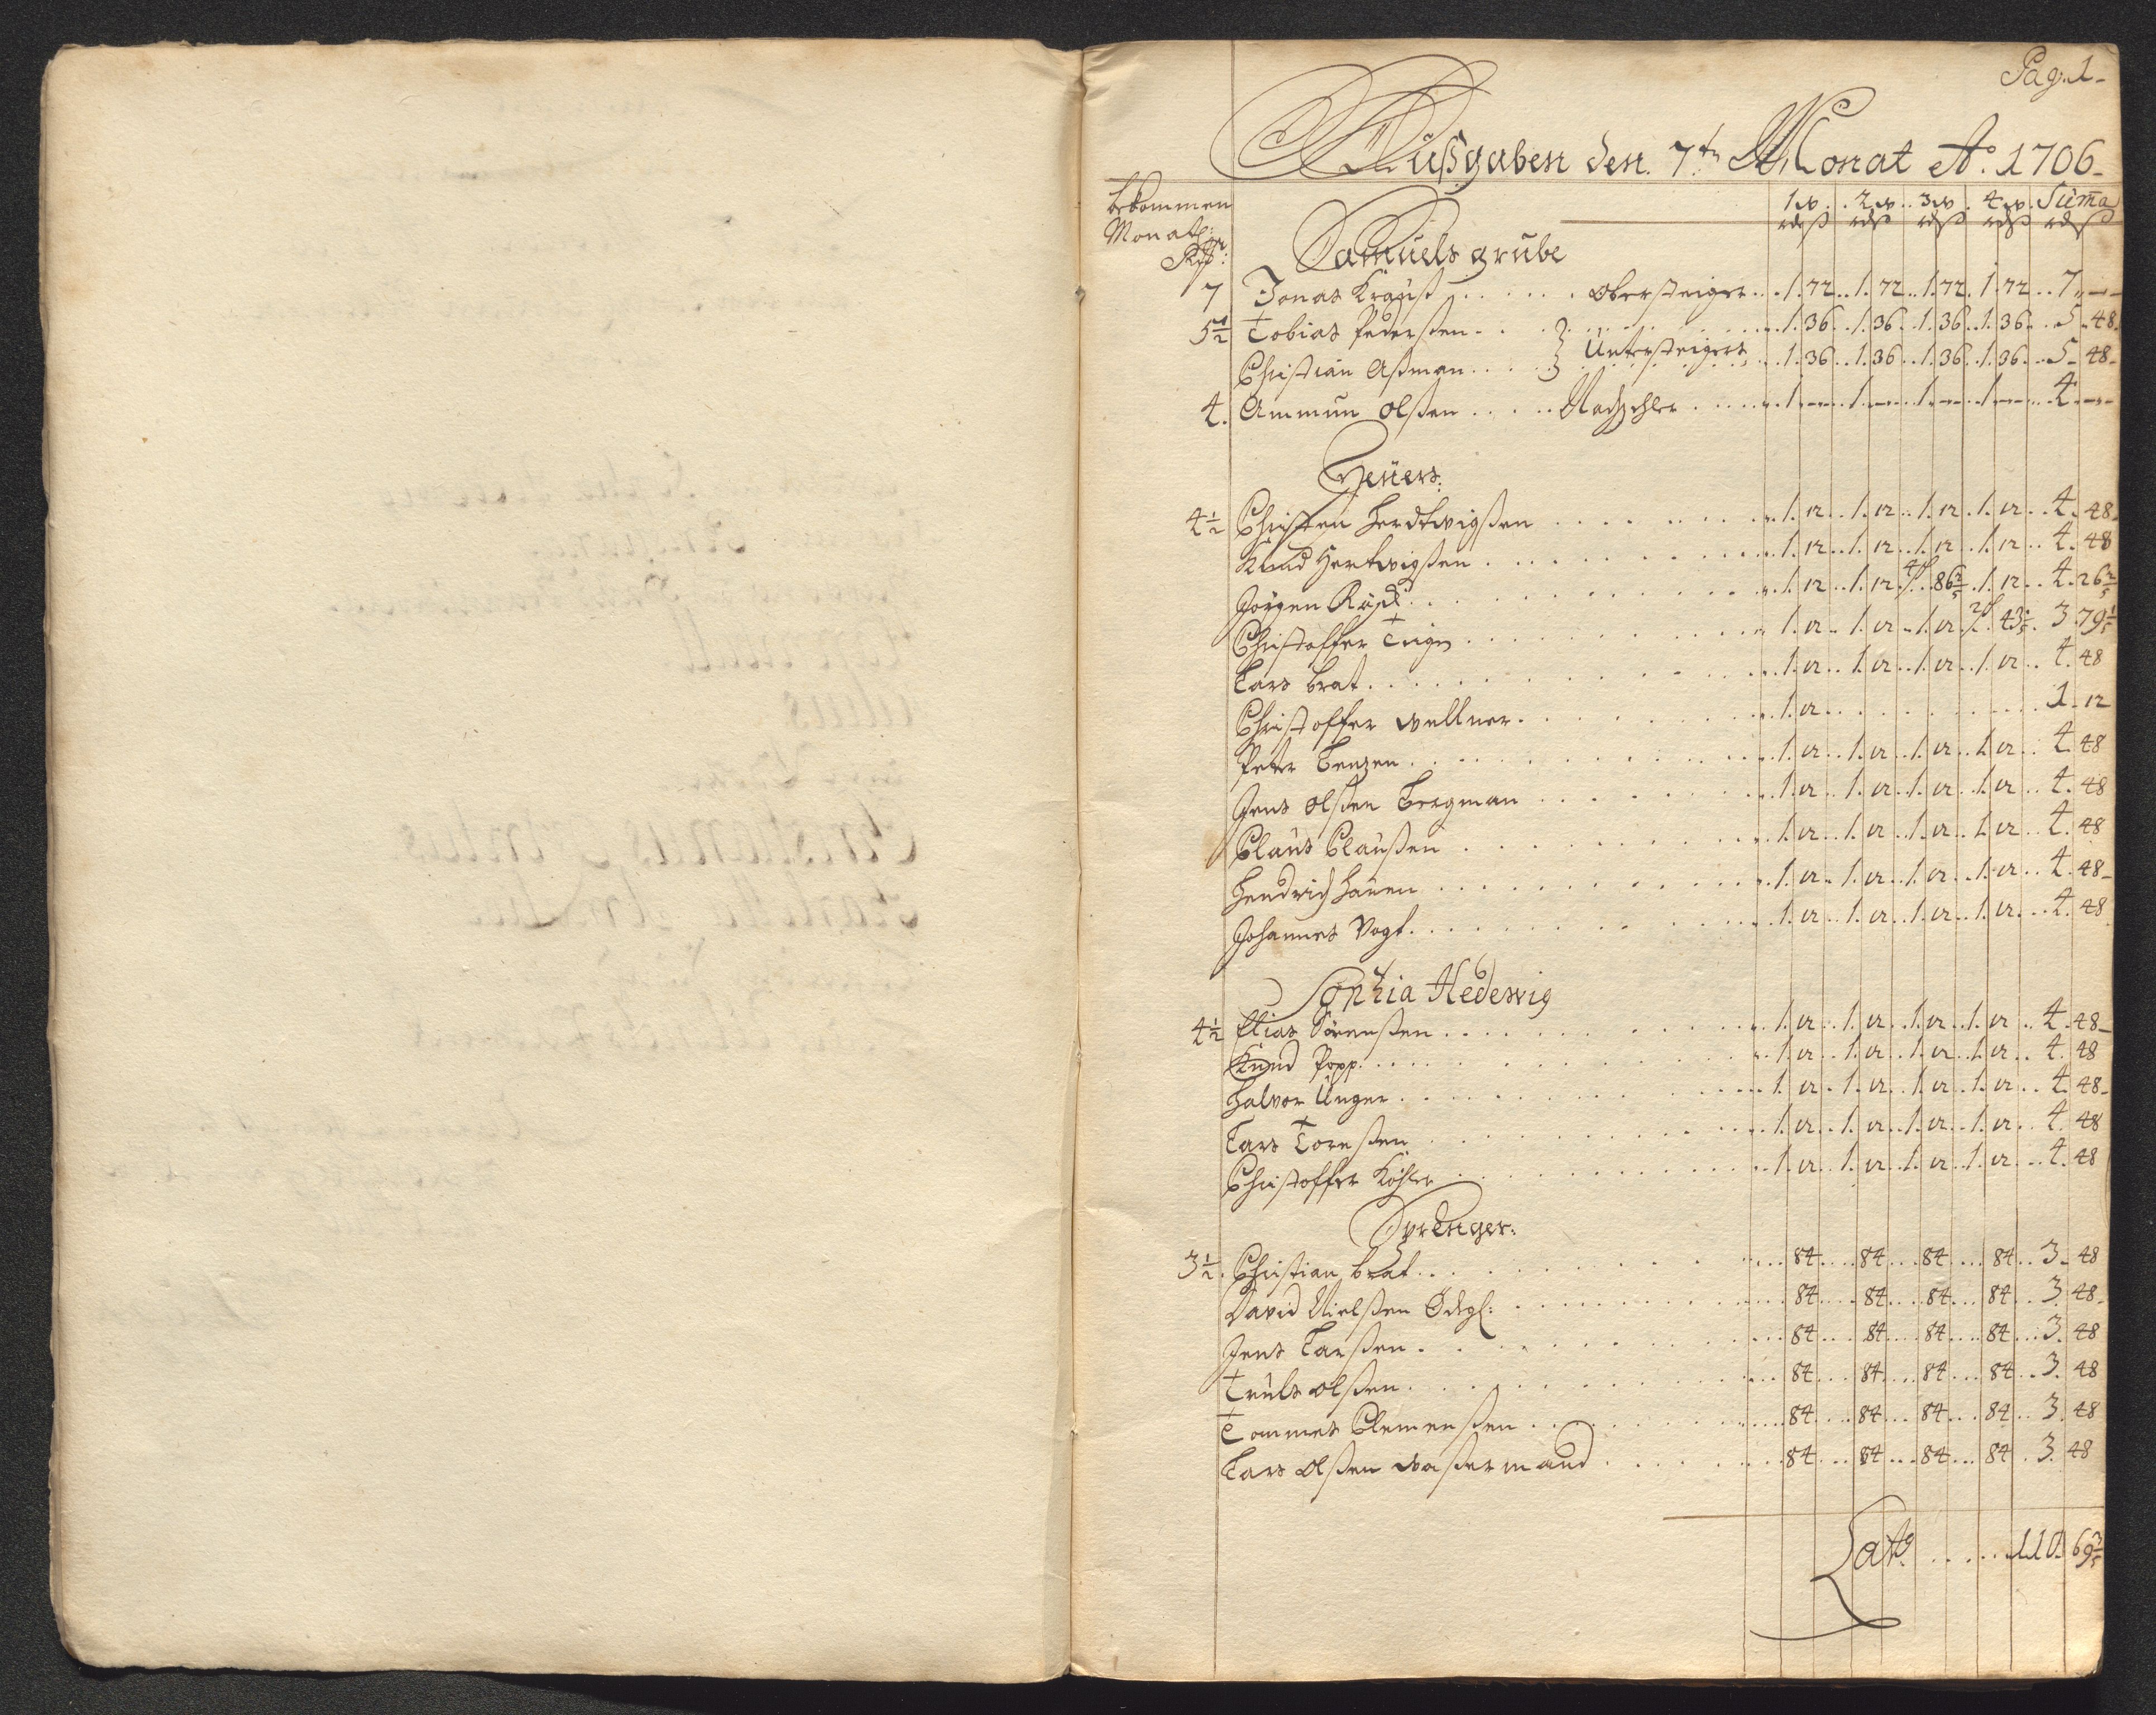 Pag. 1-
Außgaben den 7.tn Monat Ao. 1706-
bekommen 1 w. 2 w. 3 w. 4 w. Suma
Monatl: rd ß rd ß rd ß rd ß rd ß
Samuels grube
7 Jonas Krauß . . . . . Obersteiger . . 1. 72 . . 1. 72 . . 1. 72 . 1. 72 . . 7 „ —
5 1/2 Tobias Pederßen . . . . . 1. 36 . . 1. 36 . . 1. 36 . . 1. 36 . . 5 - 48
Untersteigers
Christian Aßman . . . . . 1. 36 . . 1. 36 . . 1. 36 . . 1. 36 . . 5 - 48-
4. Ammun Olßen . . . . . Nachzehler . . . . 1. — . . 1. — . . 1. — . . 1. — . . 4. —
Heuers:
4 1/2 Christen Herdtwigßen . . . . . 1. 12 . . 1. 12 . . 1. 12 . . 1. 12 . . 4. 48-
Knud Hertwigßen . . . . . 1. 12 . . 1. 12 . . 1. 12 . . 1. 12 . . 4. 48
Jörgen . . . . . 1. 12 . . 1. 12 . 86 2/5 . 1. 12 . . 4. 26 2/5
Christoffer . . . . . 1. 12 . . 1. 12 . . 1. 12 . 43 1/5 . 3. 79 1/5
Lars Brat . . . . . 1. 12 . . 1. 12 . . 1. 12 . . 1. 12 . . 4. 48
Christoffer Wellner . . . . . 1. 12 . . . . . 1 - 12
Peter Benzen . . . . . 1. 12 . . 1. 12 . . 1. 12 . . 1. 12 . . 4. 48
Jens Olßen Bergman . . . . . 1. 12 . . 1. 12 . . 1. 12 . . 1. 12 . . 4. 48
Claus Claußen . . . . . 1. 12 . . 1. 12 . . 1. 12 . . 1. 12 . . 4. 48
Hendrich Hauen . . . . . 1. 12 . . 1. 12 . . 1. 12 . . 1. 12 . . 4. 48-
Johannes Vogt . . . . . 1. 12 . . 1. 12 . . 1. 12 . . 1. 12 . . 4. 48
Sophia Hedewig
4 1/2 Elias Sörenßen . . . . . 1. 12 . . 1. 12 . . 1. 12 . . 1. 12 . . 4. 48-
Knud Popp . . . . . 1. 12 . . 1. 12 . . 1. 12 . . 1. 12 . . 4. 48
Halvor Unger . . . . . 1. 12 . . 1. 12 . . 1. 12 . . 1. 12 . . 4. 48-
Lars Toreßen . . . . . 1. 12 . . 1. 12 . . 1. 12 . . 1. 12 . . 4. 48
Christoffer Köhler . . . . . 1. 12 . . 1. 12 . . 1. 12 . . 1. 12 . . 4. 48
Sprenger:
3 1/2. Christian Brat . . . . . 84 . . . 84 . . . 84 . . . 84 . . 3 - 48
David Nielßen . . . . . 84 . . . 84 . . . 84 . . . 84 . . 3. 48-
Jens Larßen . . . . . 84 . . . 84 . . . 84 . . . 84 . . 3. 48
Truls Olßen . . . . . 84 . . . 84 . . . 84 . . . 84 . . 3. 48
Tommes Clemenßen . . . . . 84 . . . 84 . . . 84 . . . 84 . . 3. 48
Lars Olßen Waßermand . . . . . 84 . . . 84 . . . 84 . . . 84 . . 3. 48
Lato . . . . . 110. 69 3/5